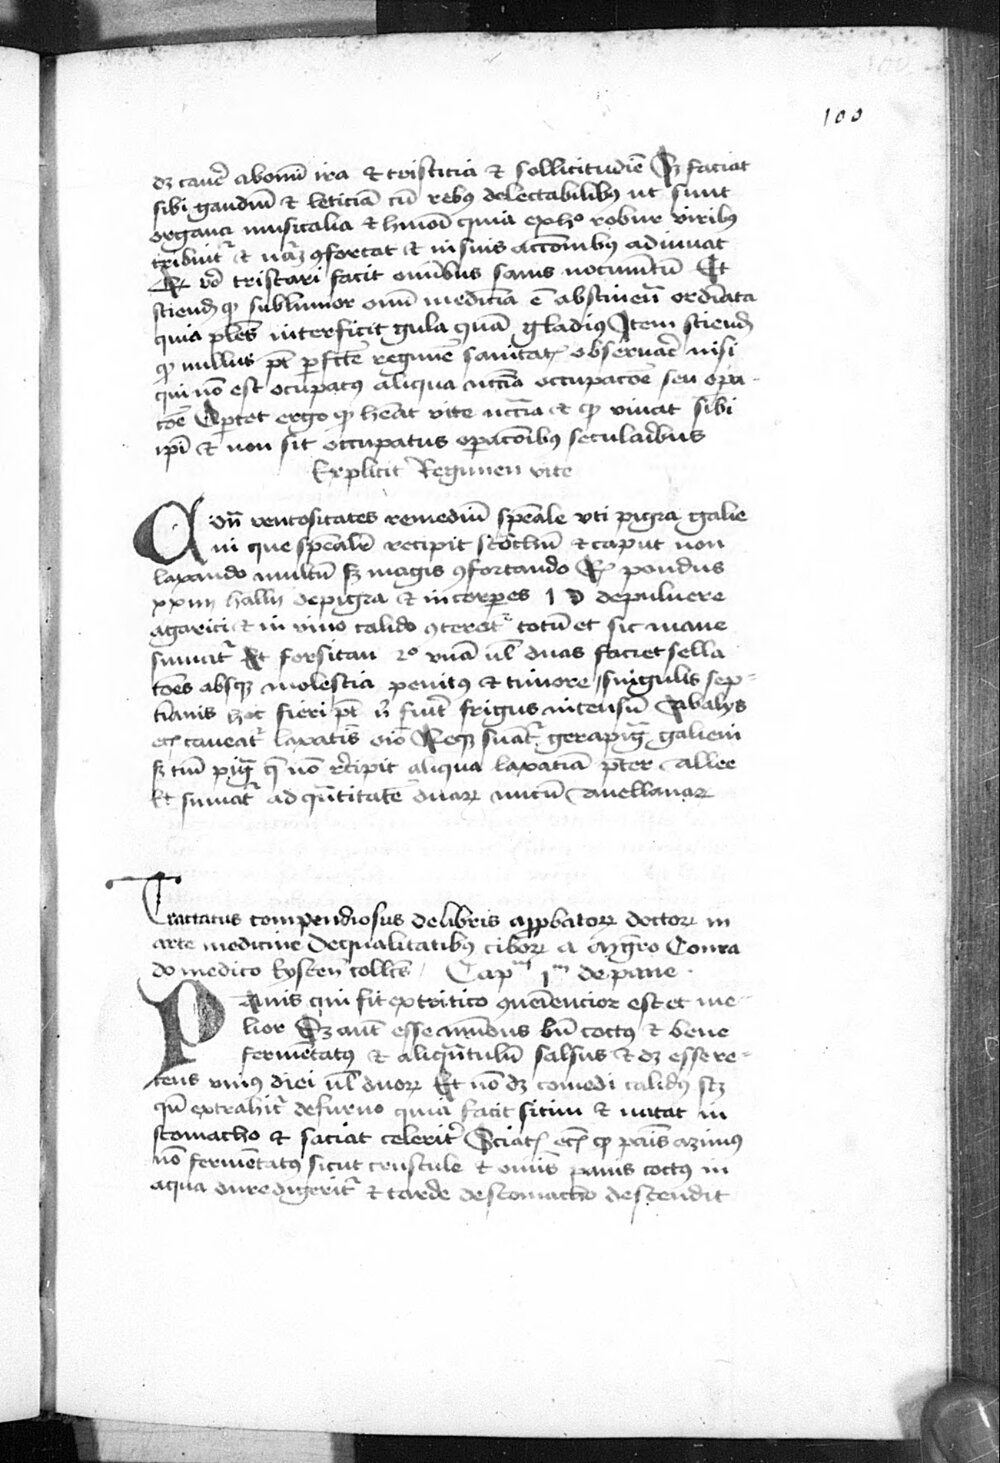 100
dz caver ab omni ira et tristicia et sollicitudie Sz faciat
sibi gaudiu et leticia cu rebus delectabilibus ut sunt
organa musicalia et hmoi quia ex ho robur viribus
tribuit et naz confortat et in suis accionibus adiuuat
Et vo tristari facit omnibus sanis nocumetu Et
sciend quod sublimior omi medicia e abstinen ordinata
quia ples interficit gula qua gladius Item sciend
quod nullus pt perfcte regime sanitat observare nisi
qui no est occupatus aliqua nccia occupacoe seu opa-
coe Aportet ergo quod heat vite nccia et quod vivat sibi
ipi et non sit occupatus operacoibus secularibus
Explicit Regimen vite
Advn ventositates remediu speale vti pigra galie
ni que spealr recipit stochu et caput non
laxando multu sz magis confortando Rx pondus
xxiiii hallii de pigra et incorpores 1 D de pulvere
agarici et in vino calido conteret totu et sic mane
sumat Et forsitan vna vl duas faciet sella
coes absque molestia penitus et timore singulis sep-
timanis hoc fieri pt n fuit frigus intensu Ab alys
caveat laxatis oio gerapig galieni
sz tm pig q no recipit aliqua laxatia pter allee
Et sumat ad quatitate duar nucu avellanar
Tractatus compendiosus de libris approbator doctor in
arte medicine De qualitatibus cibor a mgro Conra
do medico Eysten collcs Capm 1m de pane
Panis qui fit ex tritico conveniencior est et me-
lior Dz aut esse mundus bn coctus et bene
fermetatus et aliquatulu salsus et dz esse re-
cens unius diei vl duor Et no dz comedi calidus scz
qn extrahit de furno quia facit sitim et natat in
stomacho et saciat celerit Sciat quod pais azimus
no fermetatus sicut crustule et omis panis coctus in
aqua dure digerit et tarde de stomacho descendit